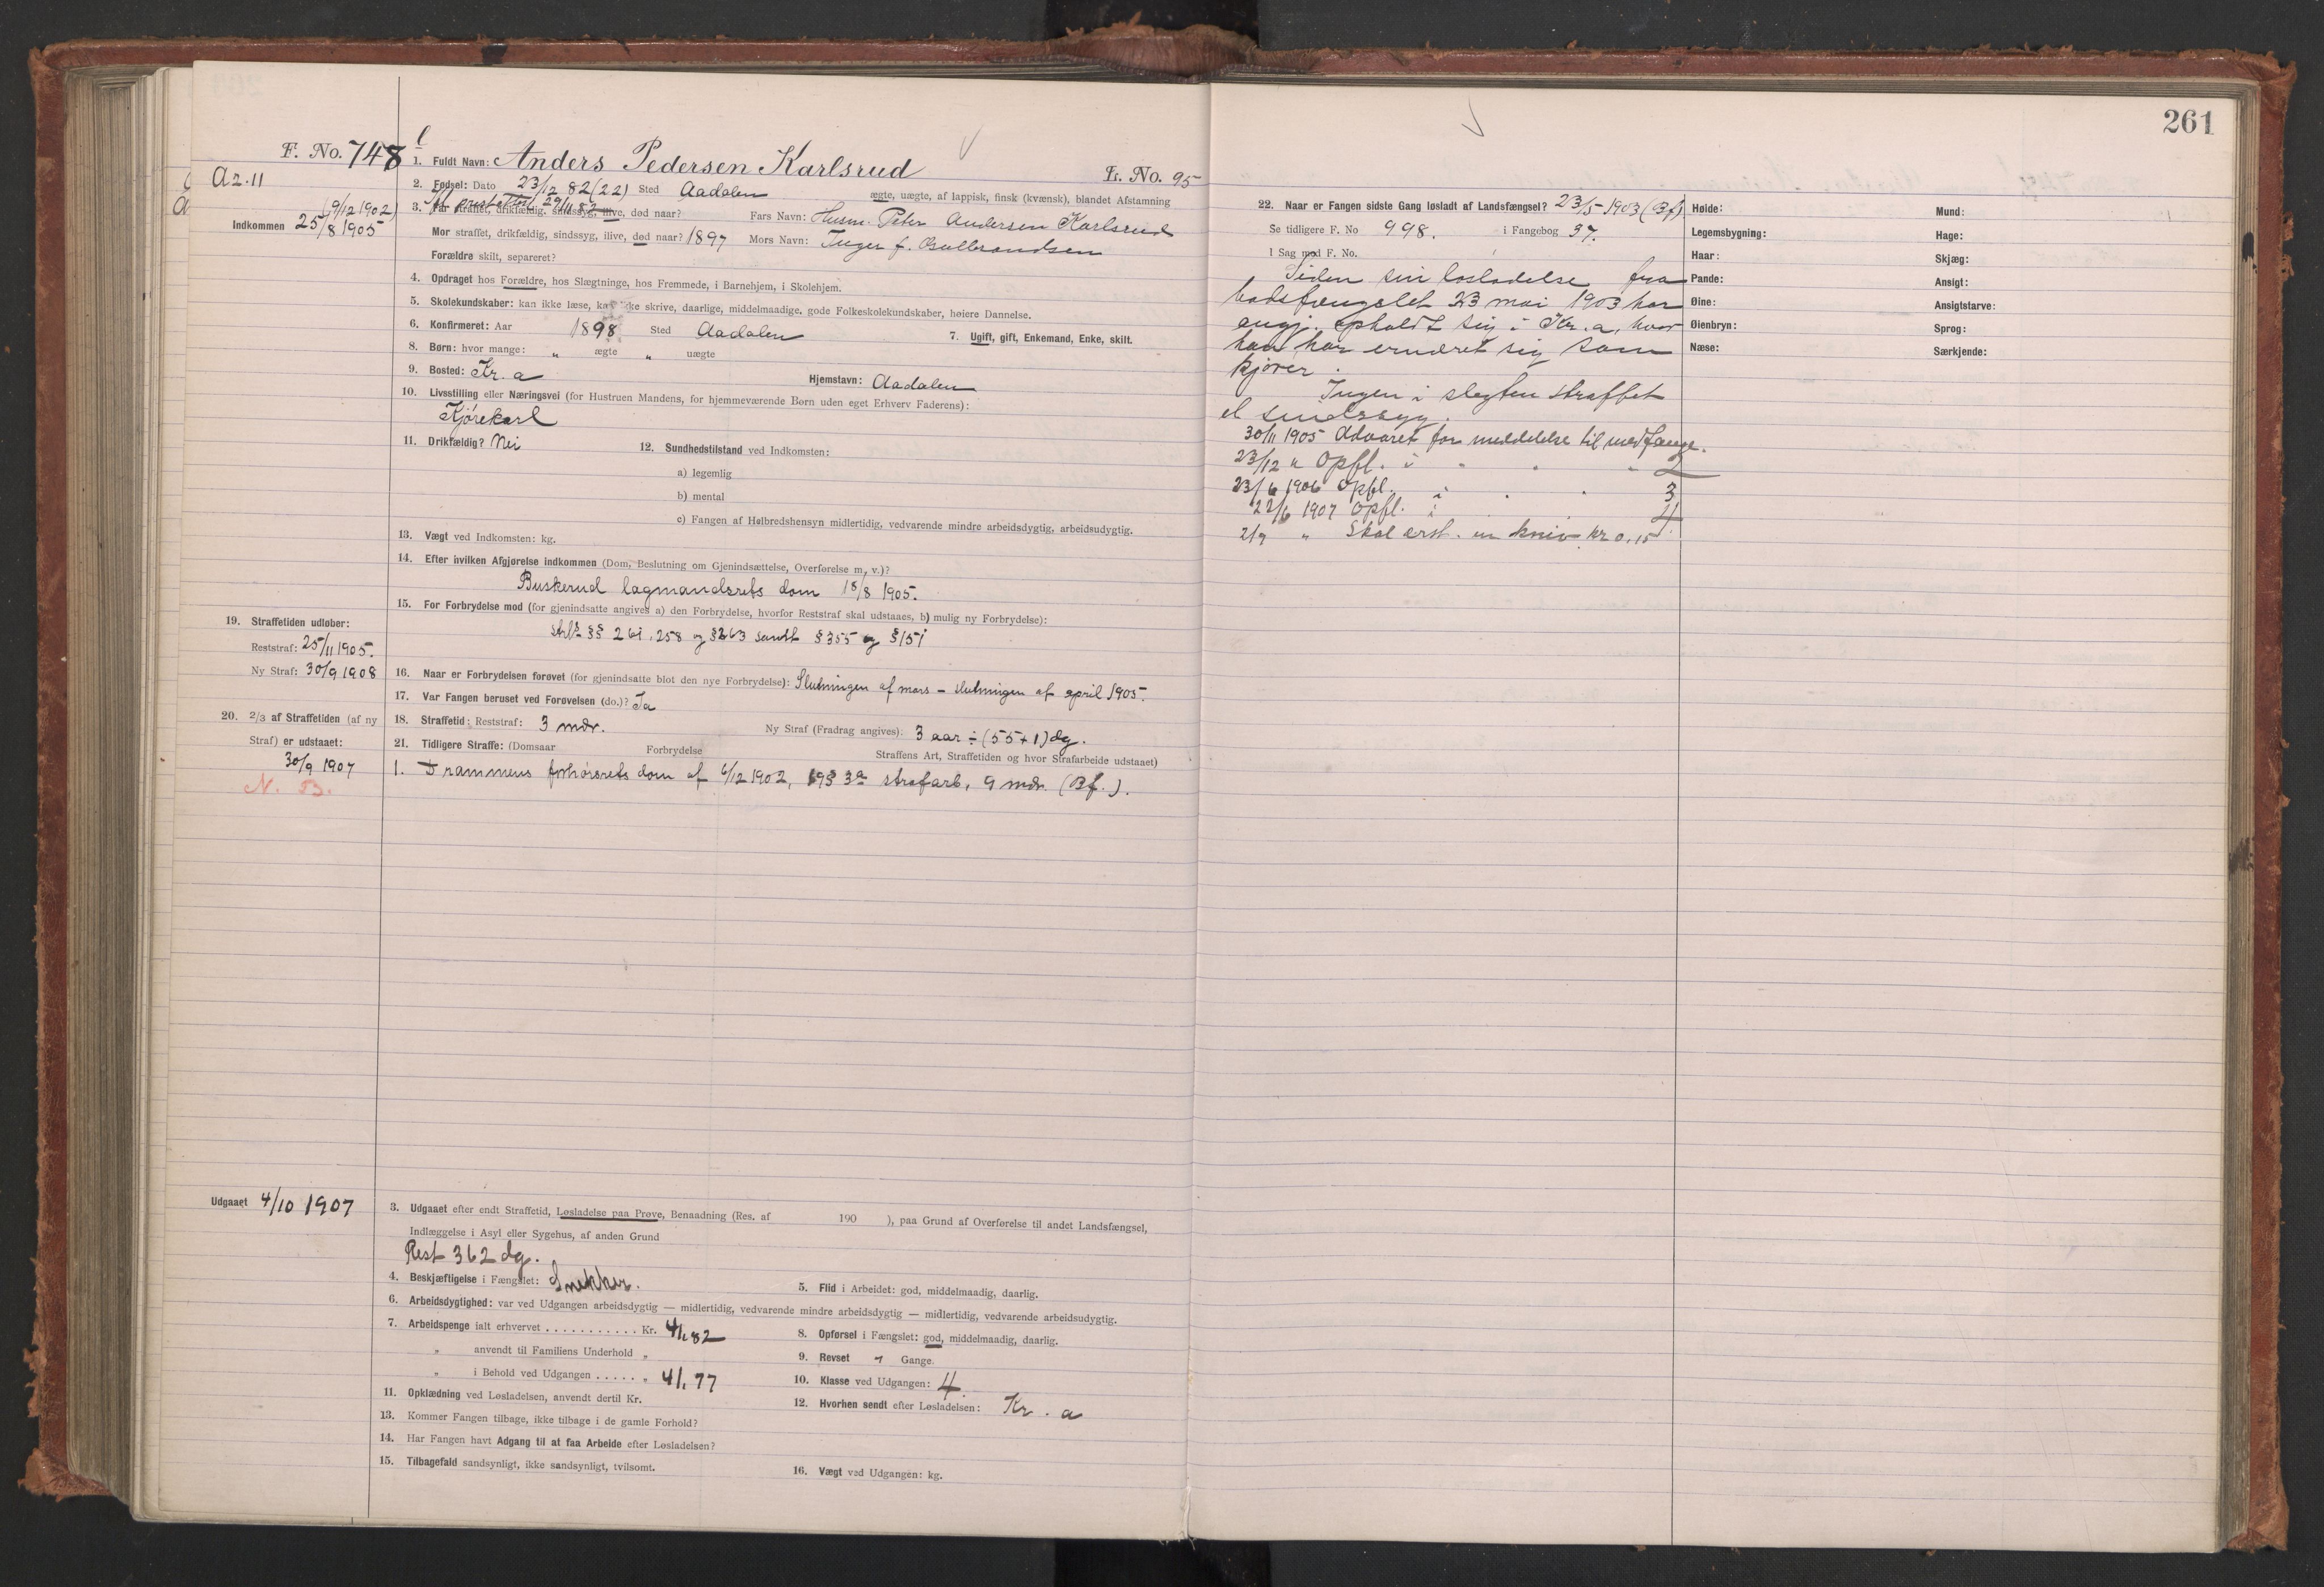 261
F. No. 748
Az. 11
(9/12 1902)
Indkommen 25/8 1905
1. Fuldt Navn: Anders Pedersen Karlsrud
L. No. 95
2. Fødsel: Dato 23/12 82 (22) Sted Aadalen
ægte, uægte, af lappisk, finsk (kvænsk), blandet Afstamning
ifl. prestattest 29/11 82
3. Far straffet, drikfældig, sindssyg, ilive, død naar?
Fars Navn: Husm. Peter Andersen Karlsrud
Mor straffet, drikfældig, sindssyg, ilive, død naar? 1897
Mors Navn: Inger f. Gulbrandsen
Forældre skilt, separeret?
4. Opdraget hos Forældre, hos Slægtninge, hos Fremmede, i Barnehjem, i Skolehjem.
5. Skolekundskaber: kan ikke læse, kan ikke skrive, daarlige, middelmaadige, gode Folkeskolekundskaber, høiere Dannelse.
6. Konfirmeret: Aar 1898 Sted Aadalen
7. Ugift, gift, Enkemand, Enke, skilt.
8. Børn: hvor mange: „ ægte „ uægte
9. Bosted: Kr.a
Hjemstavn: Aadalen
10. Livsstilling eller Næringsvei (for Hustruen Mandens, for hjemmeværende Børn uden eget Erhverv Faderens):
Kjørekarl
11. Drikfældig? Nei
12. Sundhedstilstand ved Indkomsten:
a) legemlig
b) mental
c) Fangen af Helbredshensyn midlertidig, vedvarende mindre arbeidsdygtig, arbeidsudygtig.
13. Vægt ved Indkomsten: kg.
14. Efter hvilken Afgjørelse indkommen (Dom, Beslutning om Gjenindsættelse, Overførelse m. v.)?
Buskerud lagmandsrets dom 18/8 1905.
15. For Forbrydelse mod (for gjenindsatte angives a) den Forbrydelse, hvorfor Reststraf skal udstaaes, b) mulig ny Forbrydelse):
strl. §§ 261, 258 og § 263 samt § 355 og § 151
19. Straffetiden udløber:
Reststraf: 25/11 1905.
Ny Straf: 30/9 1908
16. Naar er Forbrydelsen forøvet (for gjenindsatte blot den nye Forbrydelse): Slutningen af mars – slutningen af april 1905.
17. Var Fangen beruset ved Forøvelsen (do.)? Ja
20. 2/3 af Straffetiden (af ny
Straf) er udstaaet:
30/9 1907
N. B.
18. Straffetid: Reststraf: 3 mdr.
Ny Straf (Fradrag angives): 3 aar ÷ (55+1) dg.
21. Tidligere Straffe: (Domsaar Forbrydelse Straffens Art, Straffetiden og hvor Strafarbeide udstaaet)
1. Drammens forhørsrets dom af 6/12 1902, strafarb. 9 mdr. (Bf.).
Udgaaet 4/10 1907
3. Udgaaet efter endt Straffetid, Løsladelse paa Prøve, Benaadning (Res. af 190 ), paa Grund af Overførelse til andet Landsfængsel,
Indlæggelse i Asyl eller Sygehus, af anden Grund
Rest 362 dg.
4. Beskjæftigelse i Fængslet: Snekker.
5. Flid i Arbeidet: god, middelmaadig, daarlig.
6. Arbeidsdygtighed: var ved Udgangen arbeidsdygtig — midlertidig, vedvarende mindre arbeidsdygtig — midlertidig, vedvarende arbeidsudygtig.
7. Arbeidspenge ialt erhvervet . . . . . . . . . . . Kr. 41,82
8. Opførsel i Fængslet: god, middelmaadig, daarlig.
„ anvendt til Familiens Underhold „
9. Revset Gange.
„ i Behold ved Udgangen . . . . . „ 41,77
10. Klasse ved Udgangen: 4.
11. Opklædning ved Løsladelsen, anvendt dertil Kr.
12. Hvorhen sendt efter Løsladelsen: Kr. a
13. Kommer Fangen tilbage, ikke tilbage i de gamle Forhold?
14. Har Fangen havt Adgang til at faa Arbeide efter Løsladelsen?
15. Tilbagefald sandsynligt, ikke sandsynligt, tvilsomt.
16. Vægt ved Udgangen: kg.
22. Naar er Fangen sidste Gang løsladt af Landsfængsel? 23/5 1903 (Bf)
Se tidligere F. No 998. i Fangebog 37.
I Sag med F. No.
Siden sin løsladelse fra
bodsfængslet 23 mai 1903 har
angj. opholdt sig i Kr.a, hvor
han har ernæret sig som
kjører.
Ingen i slegten straffet
el sindssyg.
30/11 1905 Advaret for meddelelse til medfange.
23/12 „ Opfl. i „ „ „ 2
23/6 1906 Opfl. i „ „ 3
22/6 1907 Opfl. i „ „ 4
2/9 „ Skal erst. en kniv kr 0,15
Høide:
Legemsbygning:
Haar:
Pande:
Øine:
Øienbryn:
Næse:
Mund:
Hage:
Skjæg:
Ansigt:
Ansigtstarve:
Sprog:
Særkjende: